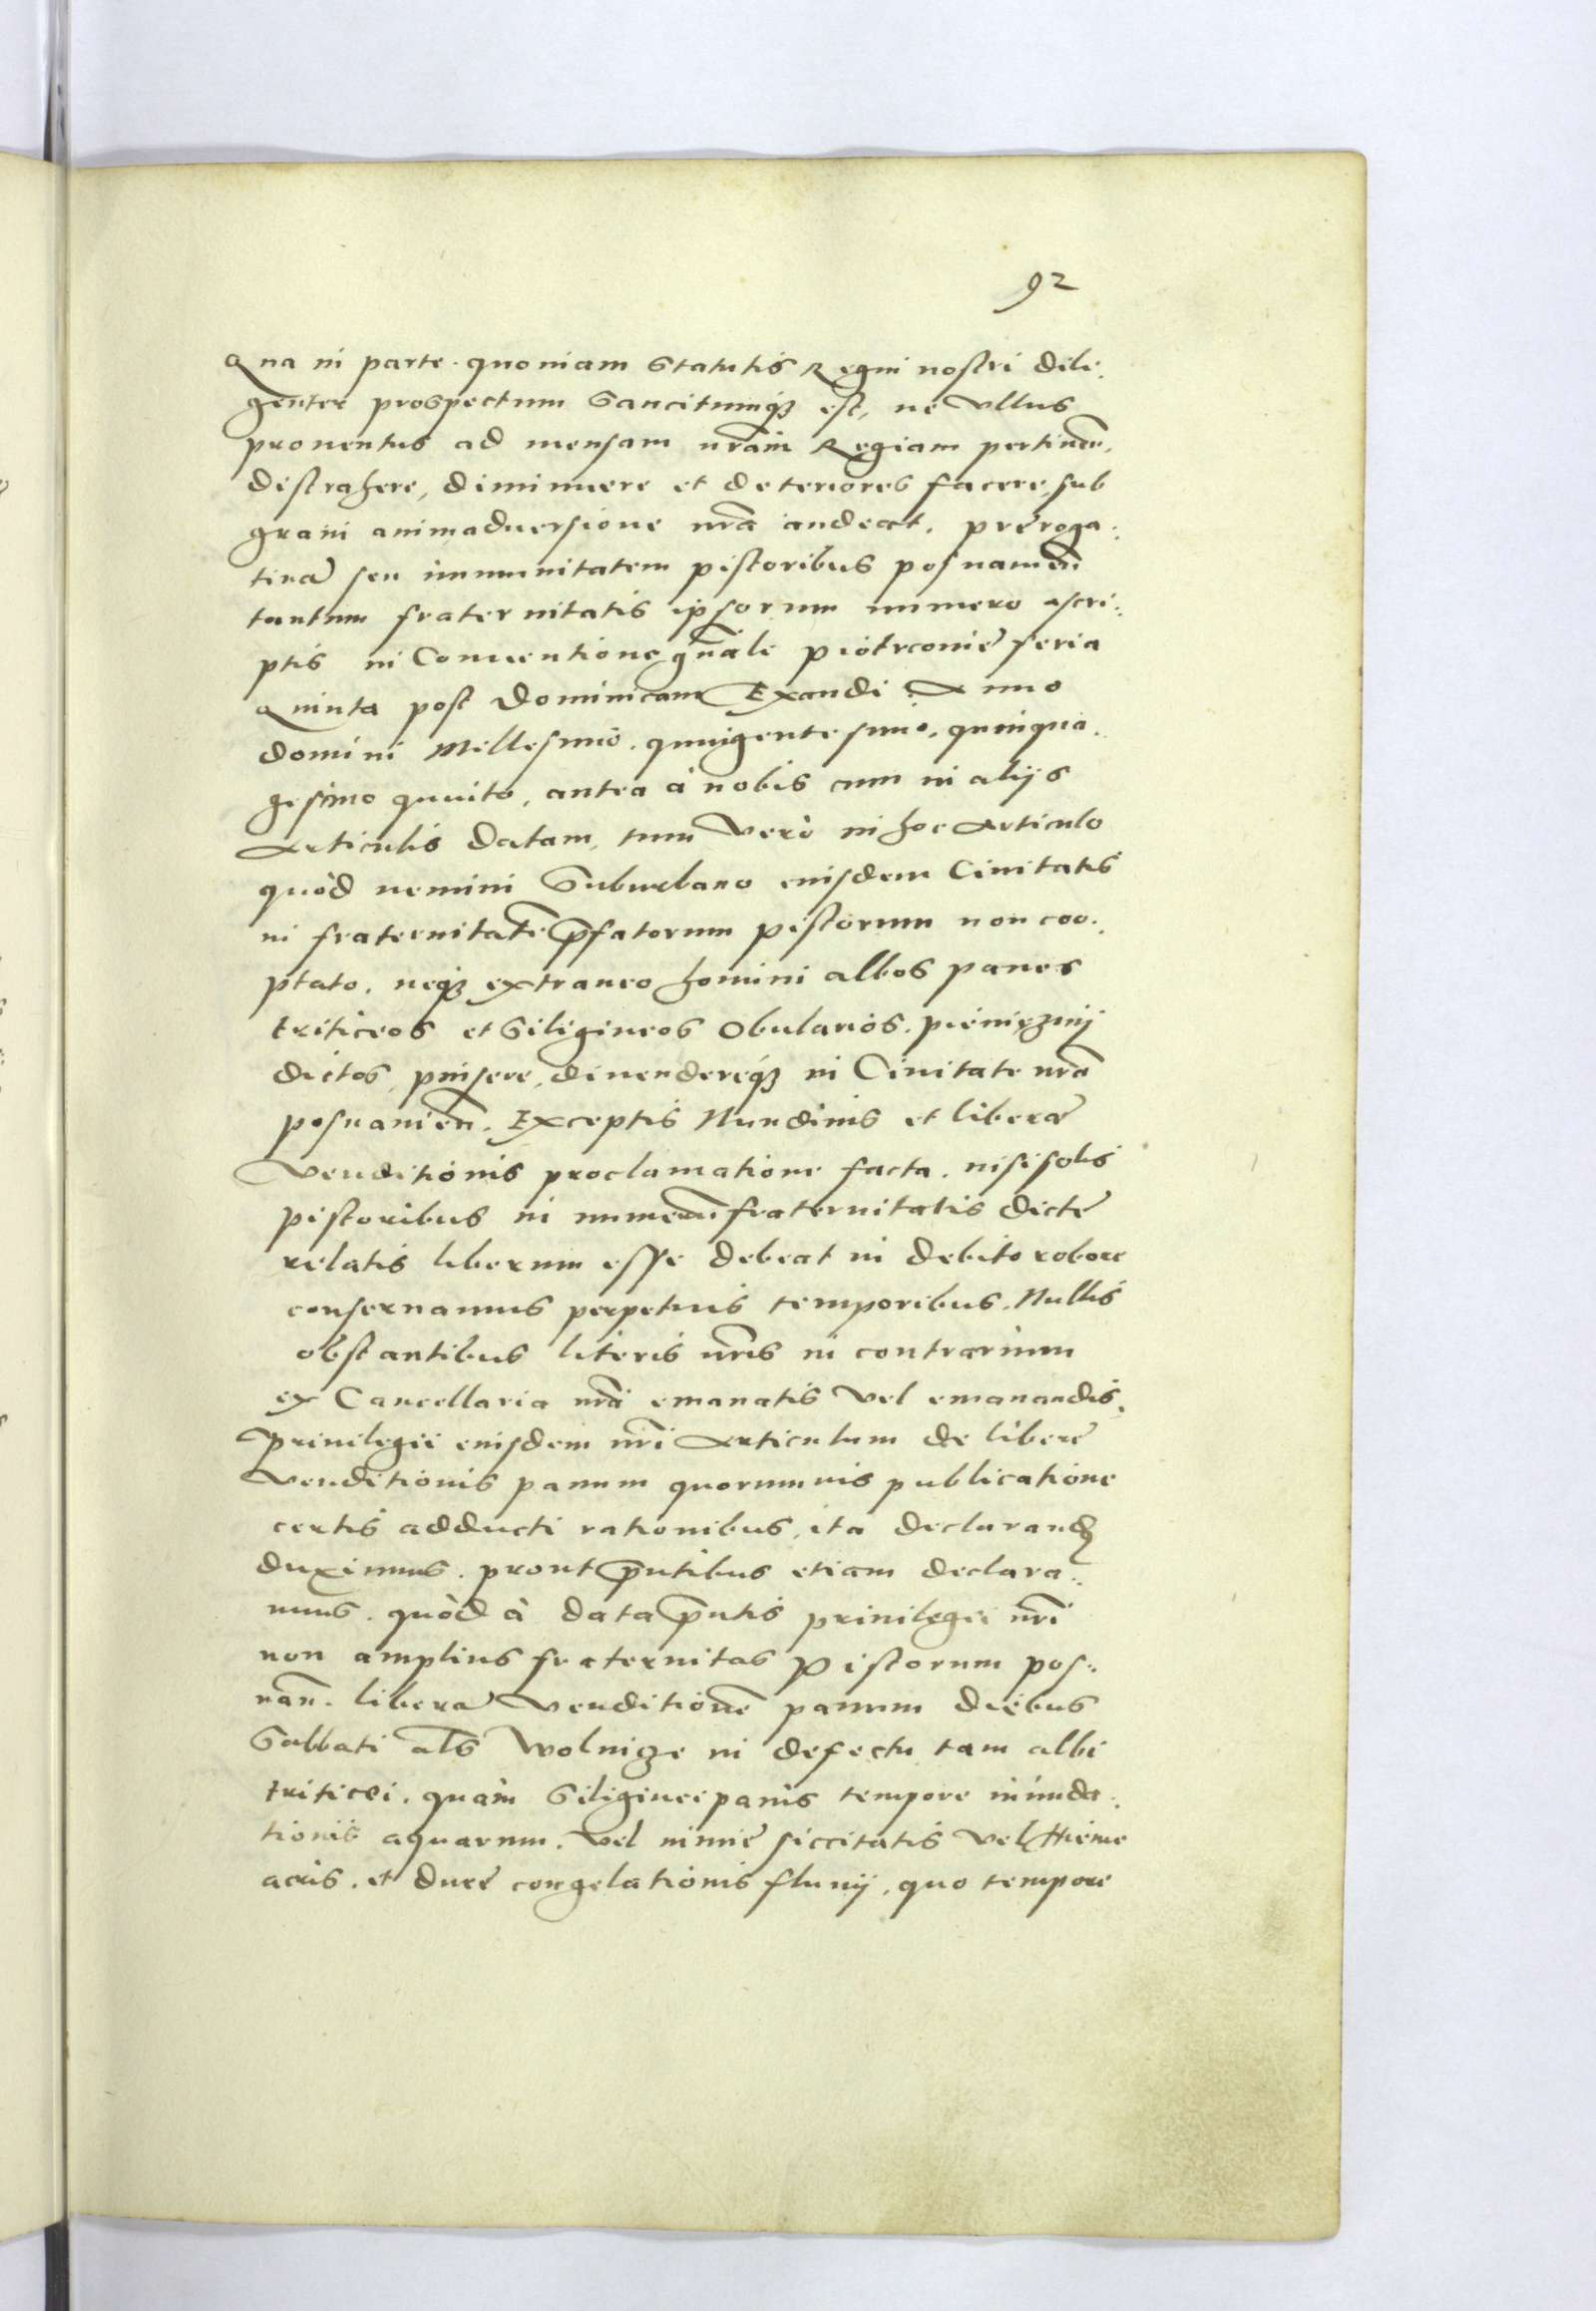 92
Qua in parte. quoniam Statutis Regni nostri dili:
genter prospectum Sancitumq₃ est, ne Vllus
prouentus ad mensam nr̃am Regiam pertinen̄.
distrahere, diminuere et deteriores facere, sub
graui animaduersione nr̃a audeat. prȩroga:
tiuā seu immunitatem pistoribus posnanien̄
tantum fraternitatis ipsorum numero ascri:
ptis in Conuentione gn̄ale piotrconiȩ feria
Quinta post Dominicam Exaudi Anno
domini Millesimo. quingentesimo. quinqua:
gesimo quinto, antea à nobis cum in alijs
Articulis datam, tum Verò in hoc Articulo
quòd nemini Suburbano eiusdem Ciuitatis
in fraternitatē p̄fatorum pistorum non coo:
ptato. neq₃ extraneo homini albos panes
triticeos et Siligineos Obularios. pieniȩznij
dictos, pinsere, diuendereq́₃ in Ciuitate nr̃a
posnanien̄. Exceptis Nundinis et liberȩ
Venditionis proclamatione facta. nisi solis
pistoribus in numerū fraternitatis dictȩ
relatis liberum esse debeat in debito robore
conseruamus perpetuis temporibus. Nullis
obstantibus literis nr̃is in contrarium
ex Cancellaria nr̃a emanatis Vel emanandis.
Priuilegii eiusdem nr̃i Articulum de liberȩ
Venditionis panum quorumuis publicatione
certis adducti rationibus, ita declarand
duximus. prout p̄ntibus etiam declara:
mus. quòd à data p̄ntis priuilegii nr̃i
non amplius fraternitas Pistorum pos:
nan̄. liberā Venditionē panum diebus
Sabbati al̄s Wolnicze in defectu tam albi
triticei. quàm Siliginei panis tempore inunda:
tionis aquarum. Vel nimiȩ siccitatis Vel Hieme
acris. et durȩ congelationis fluuij, quo tempore